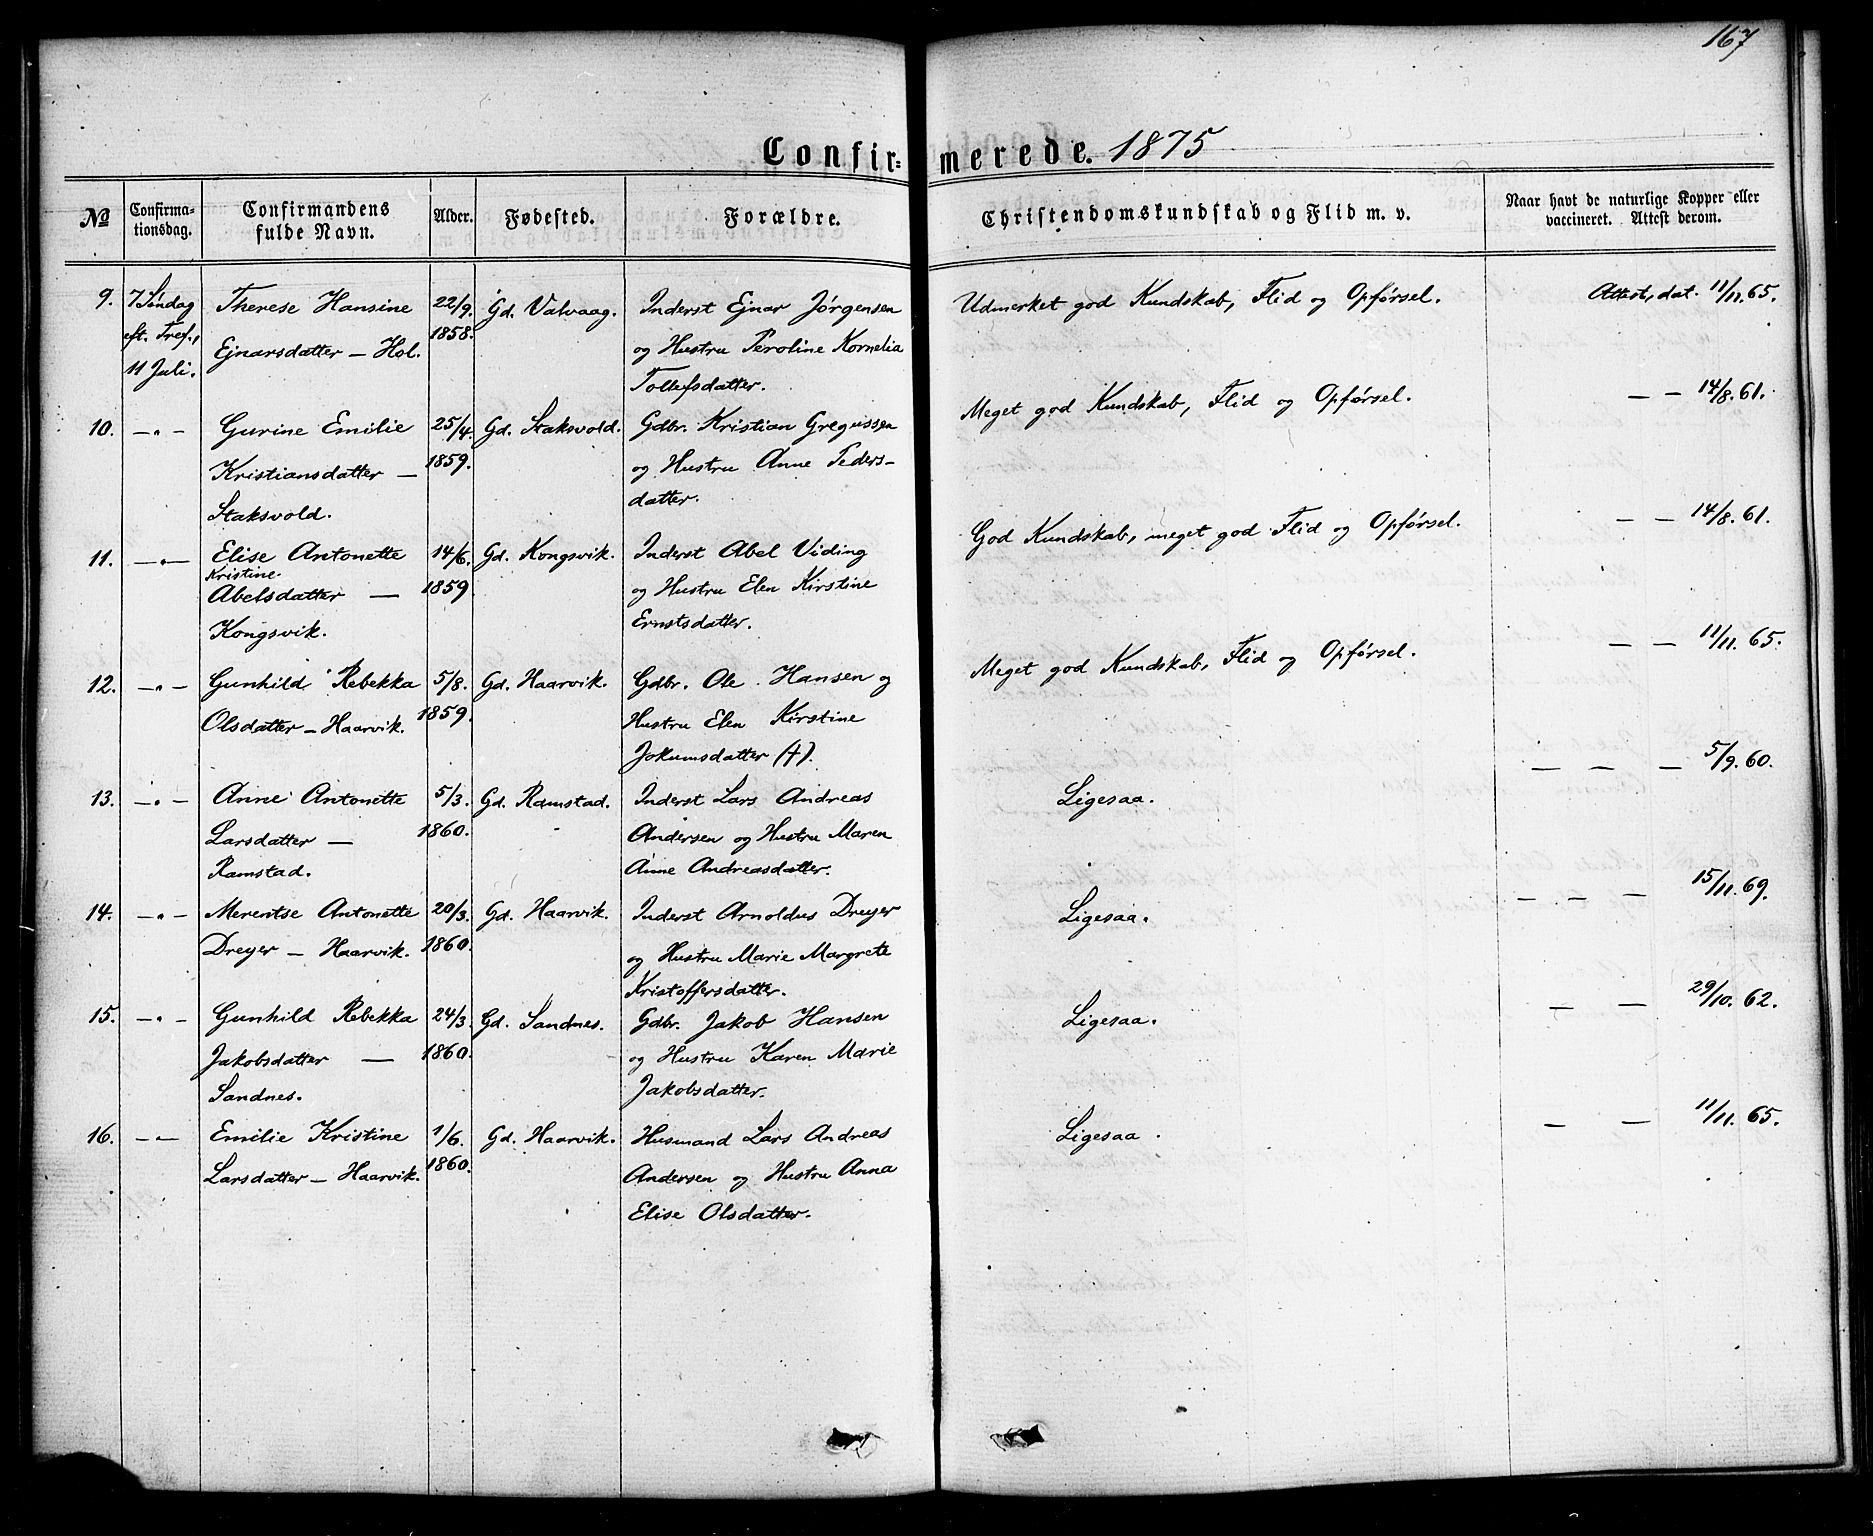 167
Confir- merede. 1875
№ | Confirma-tionsdag. | Confirmandens fulde Navn. | Alder. | Fødested. | Forældre. | Christendomskundskab og Flid m. v. | Naar havt de naturlige Kopper eller vaccineret. Attest derom.
9. 7 Søndag Therese Hansine 22/9. Gd. Valvaag. Inderst Ejnar Jørgensen Udmerket god Kundskab, Flid og Opførsel. Attest, dat. 11/11. 65.
eft. Tref., Ejnarsdatter — Hol. 1858. og Hustru Peroline Kornelia
11 Juli. Tollefsdatter.
10. —"— Gurine Emilie 25/4. Gd. Staksvold. Gdbr. Kristian Gregussen Meget god Kundskab, Flid og Opførsel. — — 14/8. 61.
Kristiansdatter — 1859. og Hustru Anne Peders-
Staksvold. datter.
11. —"— Elise Antonette 14/6. Gd. Kongsvik. Inderst Abel Viding God Kundskab, meget god Flid og Opførsel. — — 14/8. 61.
Kristine
Abelsdatter — 1859 og Hustru Elen Kirstine
Kongsvik. Ernstsdatter.
12. —"— Gunhild Rebekka 5/8. Gd. Haarvik. Gdbr. Ole Hansen og Meget god Kundskab, Flid og Opførsel. — — 11/11. 65.
Olsdatter — Haarvik. 1859. Hustru Elen Kirstine
Jokumsdatter (†).
13. —"— Anne Antonette 5/3. Gd. Ramstad. Inderst Lars Andreas Ligesaa. — — — 5/9. 60.
Larsdatter — 1860. Andersen og Hustru Maren
Ramstad. Anne Andreasdatter.
14. —"— Merentse Antonette 20/3. Gd. Haarvik. Inderst Arnoldus Dreyer Ligesaa. — — — 15/11. 69.
Dreyer — Haarvik. 1860. og Hustru Marie Margrete
Kristoffersdatter.
15. —"— Gunhild Rebekka 24/3. Gd. Sandnes. Gdbr. Jakob Hansen Ligesaa. — — 29/10. 62.
Jakobsdatter — 1860. og Hustru Karen Marie
Sandnes. Jakobsdatter.
16. —"— Emilie Kristine 1/6. Gd. Haarvik. Husmand Lars Andreas Ligesaa. — — 11/11. 65.
Larsdatter — Haarvik. 1860. Andersen og Hustru Anna
Elise Olsdatter.